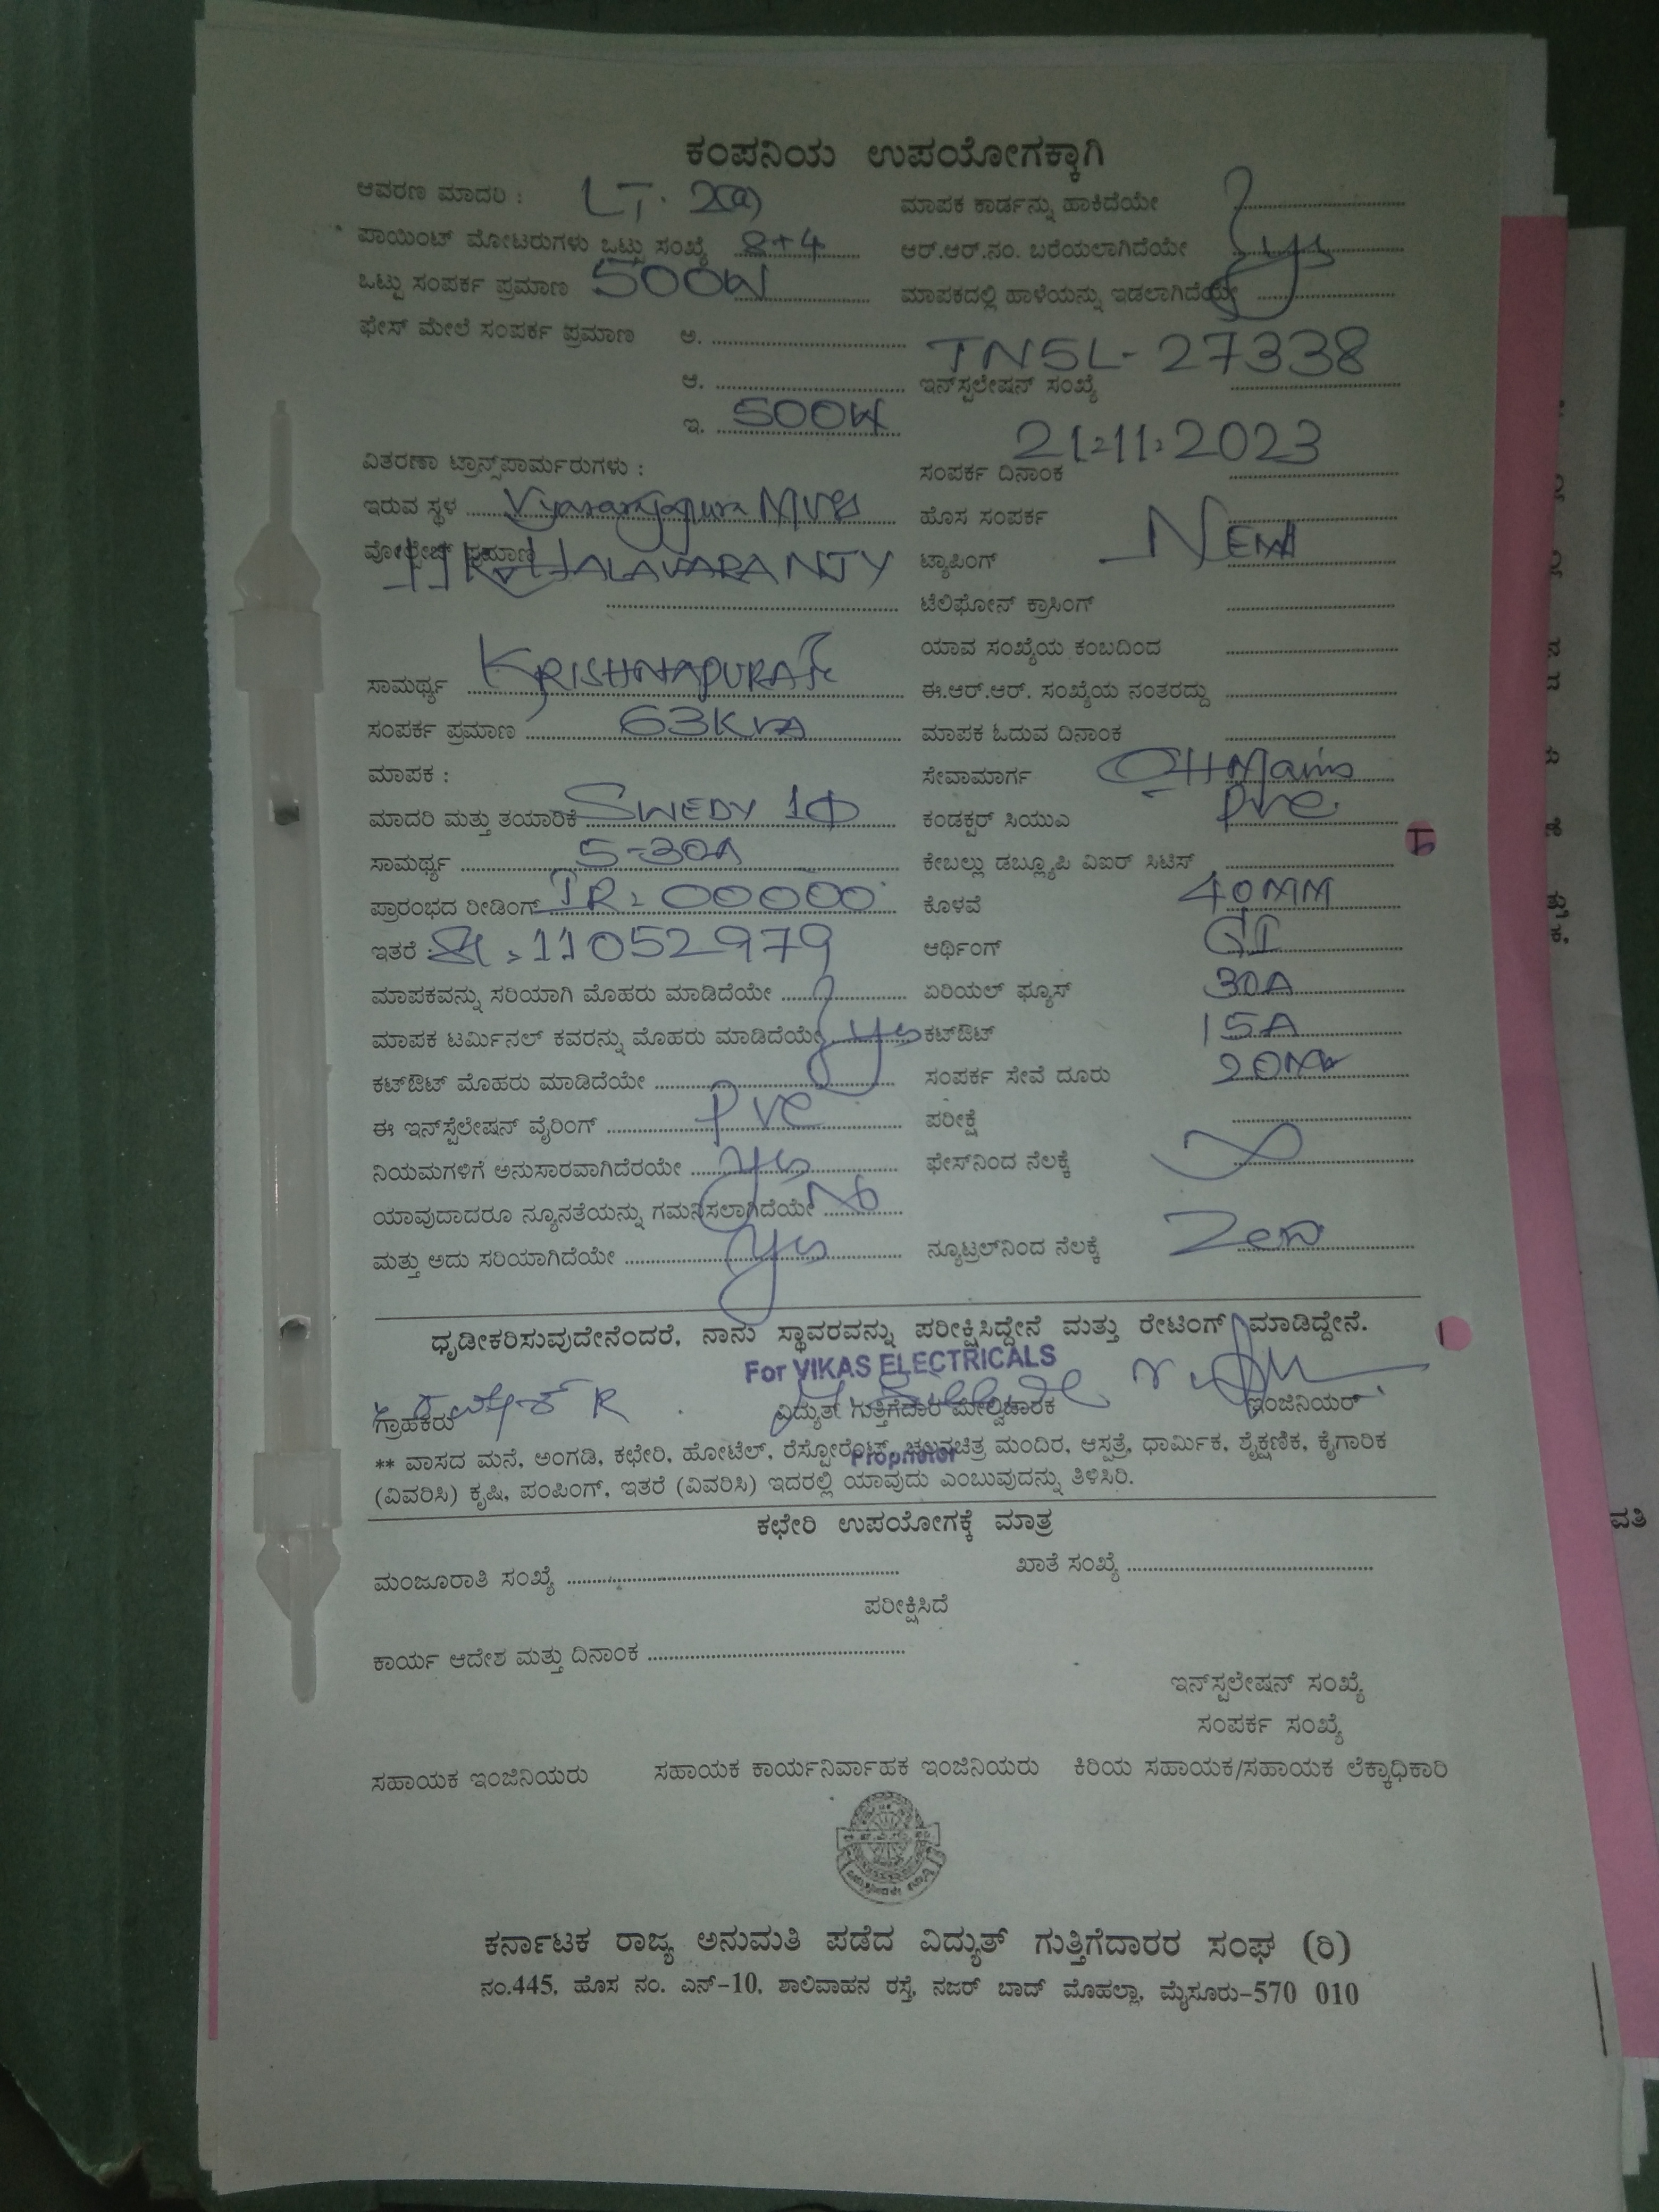 ಕಂಪನಿಯ ಉಪಯೋಗಕ್ಕಾಗಿ
ಆವರಣ ಮಾದರಿ : LT. 2(a) ಮಾಪಕ ಕಾರ್ಡನ್ನು ಹಾಕಿದೆಯೇ
ಪಾಯಿಂಟ್ ಮೋಟರುಗಳು ಒಟ್ಟು ಸಂಖ್ಯೆ 8+4 ಆರ್.ಆರ್.ನಂ. ಬರೆಯಲಾಗಿದೆಯೇ yes
ಒಟ್ಟು ಸಂಪರ್ಕ ಪ್ರಮಾಣ 500W ಮಾಪಕದಲ್ಲಿ ಹಾಳೆಯನ್ನು ಇಡಲಾಗಿದೆಯೇ
ಫೇಸ್ ಮೇಲೆ ಸಂಪರ್ಕ ಪ್ರಮಾಣ ಅ. TNSL-27338
ಆ. ಇನ್‌ಸ್ಪಲೇಷನ್ ಸಂಖ್ಯೆ
ಇ. 500W 21.11.2023
ವಿತರಣಾ ಟ್ರಾನ್ಸ್‌ಪಾರ್ಮರುಗಳು : ಸಂಪರ್ಕ ದಿನಾಂಕ
ಇರುವ ಸ್ಥಳ ಹೊಸ ಸಂಪರ್ಕ New
ವೋಲ್ಟೇಜ್ ಪ್ರಮಾಣ ಟ್ಯಾಪಿಂಗ್
ಟೆಲಿಫೋನ್ ಕ್ರಾಸಿಂಗ್
ಯಾವ ಸಂಖ್ಯೆಯ ಕಂಬದಿಂದ
ಸಾಮರ್ಥ್ಯ KRISHNAPURA Tc ಈ.ಆರ್.ಆರ್. ಸಂಖ್ಯೆಯ ನಂತರದ್ದು
ಸಂಪರ್ಕ ಪ್ರಮಾಣ 63KVA ಮಾಪಕ ಓದುವ ದಿನಾಂಕ
ಮಾಪಕ : ಸೇವಾಮಾರ್ಗ OH Mains
ಮಾದರಿ ಮತ್ತು ತಯಾರಿಕೆ SWEDY 1Φ ಕಂಡಕ್ಟರ್ ಸಿಯುಎ PVC
ಸಾಮರ್ಥ್ಯ 5-30A ಕೇಬಲ್ಲು ಡಬ್ಲ್ಯೂಪಿ ವಿಐರ್ ಸಿಟಿಸ್
ಪ್ರಾರಂಭದ ರೀಡಿಂಗ್ IR = 00000 ಕೊಳವೆ 40MM
ಇತರೆ : 11052979 ಆರ್ಥಿಂಗ್ GI
ಮಾಪಕವನ್ನು ಸರಿಯಾಗಿ ಮೊಹರು ಮಾಡಿದೆಯೇ ಏರಿಯಲ್ ಫ್ಯೂಸ್ 30A
ಮಾಪಕ ಟರ್ಮಿನಲ್ ಕವರನ್ನು ಮೊಹರು ಮಾಡಿದೆಯೇ yes ಕಟ್‌ಔಟ್ 15A
ಕಟ್‌ಔಟ್ ಮೊಹರು ಮಾಡಿದೆಯೇ ಸಂಪರ್ಕ ಸೇವೆ ದೂರು
ಈ ಇನ್‌ಸ್ಪೆಲೇಷನ್ ವೈರಿಂಗ್ PVC ಪರೀಕ್ಷೆ
ನಿಯಮಗಳಿಗೆ ಅನುಸಾರವಾಗಿದೆರಯೇ yes ಫೇಸ್‌ನಿಂದ ನೆಲಕ್ಕೆ ∞
ಯಾವುದಾದರೂ ನ್ಯೂನತೆಯನ್ನು ಗಮನಿಸಲಾಗಿದೆಯೇ No
ಮತ್ತು ಅದು ಸರಿಯಾಗಿದೆಯೇ yes ನ್ಯೂಟ್ರಲ್‌ನಿಂದ ನೆಲಕ್ಕೆ Zero
ಧೃಡೀಕರಿಸುವುದೇನೆಂದರೆ, ನಾನು ಸ್ಥಾವರವನ್ನು ಪರೀಕ್ಷಿಸಿದ್ದೇನೆ ಮತ್ತು ರೇಟಿಂಗ್ ಮಾಡಿದ್ದೇನೆ.
For VIKAS ELECTRICALS
ಗ್ರಾಹಕರು ವಿದ್ಯುತ್ ಗುತ್ತಿಗೆದಾರ ಮೇಲ್ವಿಚಾರಕ ಇಂಜಿನಿಯರ್
** ವಾಸದ ಮನೆ, ಅಂಗಡಿ, ಕಛೇರಿ, ಹೋಟೆಲ್, ರೆಸ್ಪೋರೆಂಟ್, ಚಲನಚಿತ್ರ ಮಂದಿರ, ಆಸ್ಪತ್ರೆ, ಧಾರ್ಮಿಕ, ಶೈಕ್ಷಣಿಕ, ಕೈಗಾರಿಕ
Proprietor
(ವಿವರಿಸಿ) ಕೃಷಿ, ಪಂಪಿಂಗ್, ಇತರೆ (ವಿವರಿಸಿ) ಇದರಲ್ಲಿ ಯಾವುದು ಎಂಬುವುದನ್ನು ತಿಳಿಸಿರಿ.
ಕಛೇರಿ ಉಪಯೋಗಕ್ಕೆ ಮಾತ್ರ
ಮಂಜೂರಾತಿ ಸಂಖ್ಯೆ ಖಾತೆ ಸಂಖ್ಯೆ
ಪರೀಕ್ಷಿಸಿದೆ
ಕಾರ್ಯ ಆದೇಶ ಮತ್ತು ದಿನಾಂಕ
ಇನ್‌ಸ್ಪಲೇಷನ್ ಸಂಖ್ಯೆ
ಸಂಪರ್ಕ ಸಂಖ್ಯೆ
ಸಹಾಯಕ ಇಂಜಿನಿಯರು ಸಹಾಯಕ ಕಾರ್ಯನಿರ್ವಾಹಕ ಇಂಜಿನಿಯರು ಕಿರಿಯ ಸಹಾಯಕ/ಸಹಾಯಕ ಲೆಕ್ಕಾಧಿಕಾರಿ
ಕರ್ನಾಟಕ ರಾಜ್ಯ ಅನುಮತಿ ಪಡೆದ ವಿದ್ಯುತ್ ಗುತ್ತಿಗೆದಾರರ ಸಂಘ (ರಿ)
ನಂ.445, ಹೊಸ ನಂ. ಎನ್-10, ಶಾಲಿವಾಹನ ರಸ್ತೆ, ನಜರ್ ಬಾದ್ ಮೊಹಲ್ಲಾ, ಮೈಸೂರು-570 010